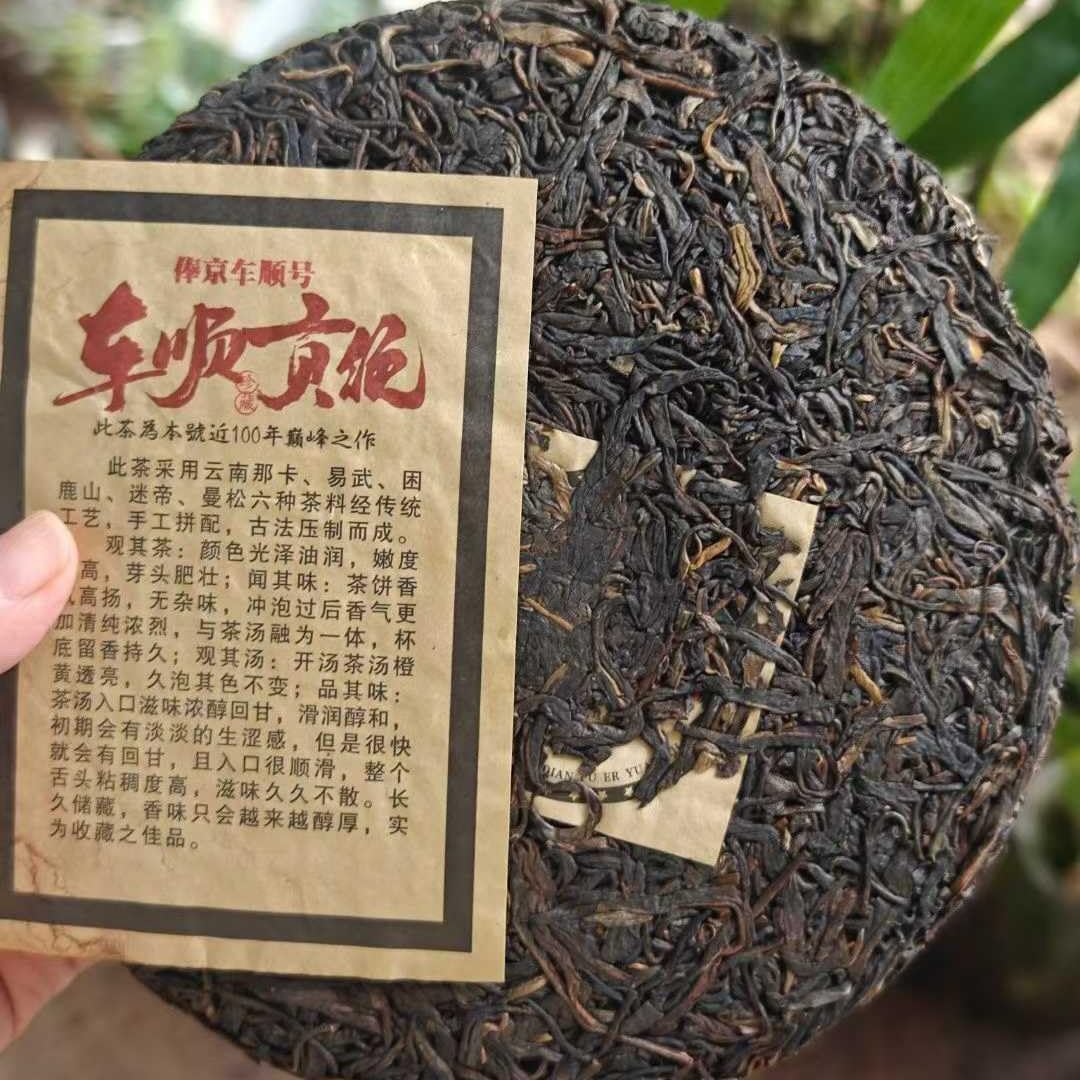 俸京车顺号
车顺贡绝
珍藏
此茶為本號近100年巅峰之作
此茶采用云南那卡、易武、困
鹿山、迷帝、曼松六种茶料经传统
工艺，手工拼配，古法压制而成。
观其茶：颜色光泽油润，嫩度
高，芽头肥壮；闻其味：茶饼香
高扬，无杂味，冲泡过后香气更
加清纯浓烈，与茶汤融为一体，杯
底留香持久；观其汤：开汤茶汤橙
黄透亮，久泡其色不变；品其味：
茶汤入口滋味浓醇回甘，滑润醇和，
初期会有淡淡的生涩感，但是很快
就会有回甘，且入口很顺滑，整个
舌头粘稠度高，滋味久久不散。长
久储藏，香味只会越来越醇厚，实
为收藏之佳品。
ER YU